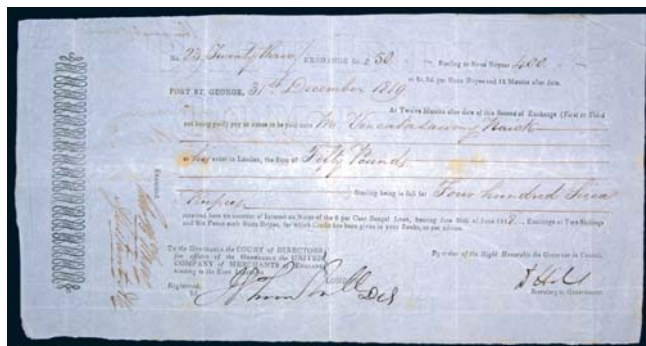 No. 23 Twenty three / EXCHANGE for £ 50 Sterling or Sicca Rupees 400
at 2s. 6d. per Sicca Rupee and 12 Months after date.
FORT ST. GEORGE, 31st December 1819
At Twelve Months after date of this Second of Exchange (First or Third
not being paid) pay or cause to be paid unto Mr Vencatasawmy Naick
or his order in London, the Sum of Fifty Pounds
Sterling being in full for Four hundred Sicca
Rupees
received here on account of Interest on Notes of the 6 per Cent Bengal Loan, bearing date 30th of June 18 Exchange at Two Shillings
and Six Pence each Sicca Rupee, for which Credit has been given in your Books, as per advice.
To the Honorable the COURT of DIRECTORS
for affairs of the Honorable the UNITED
COMPANY of MERCHANTS of ENGLAND
trading to the East Indies.
LONDON
By order of the Right Honorable the Governor in Council.
Registered,
Secretary to Government.
Examined